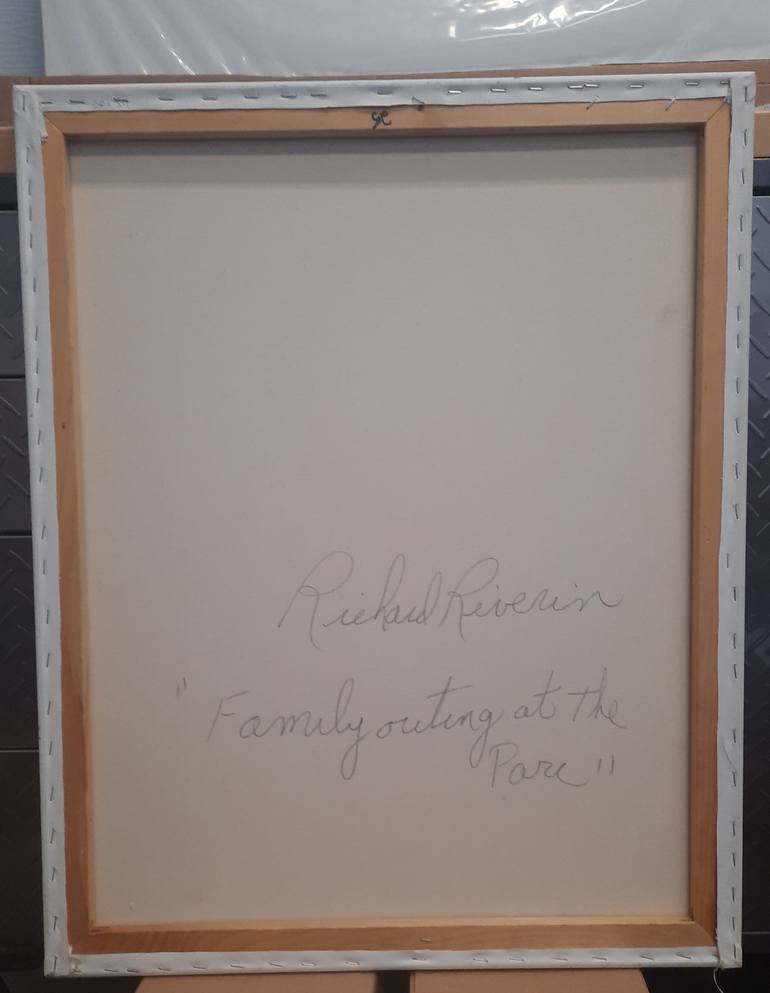 Richard Riverin
"Family outing at the
Parc"